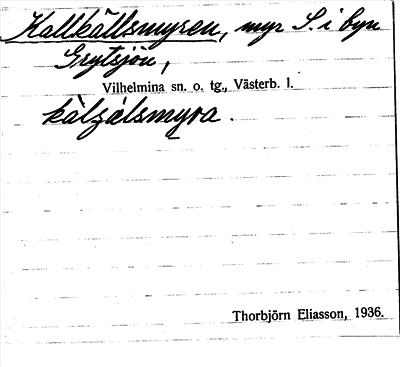 Kallkällsmyren, myr S. i byn
Grytsjön,
Vilhelmina sn. o. tg., Västerb. l.
kàlʒálsmyra.
Thorbjörn Eliasson, 1936.